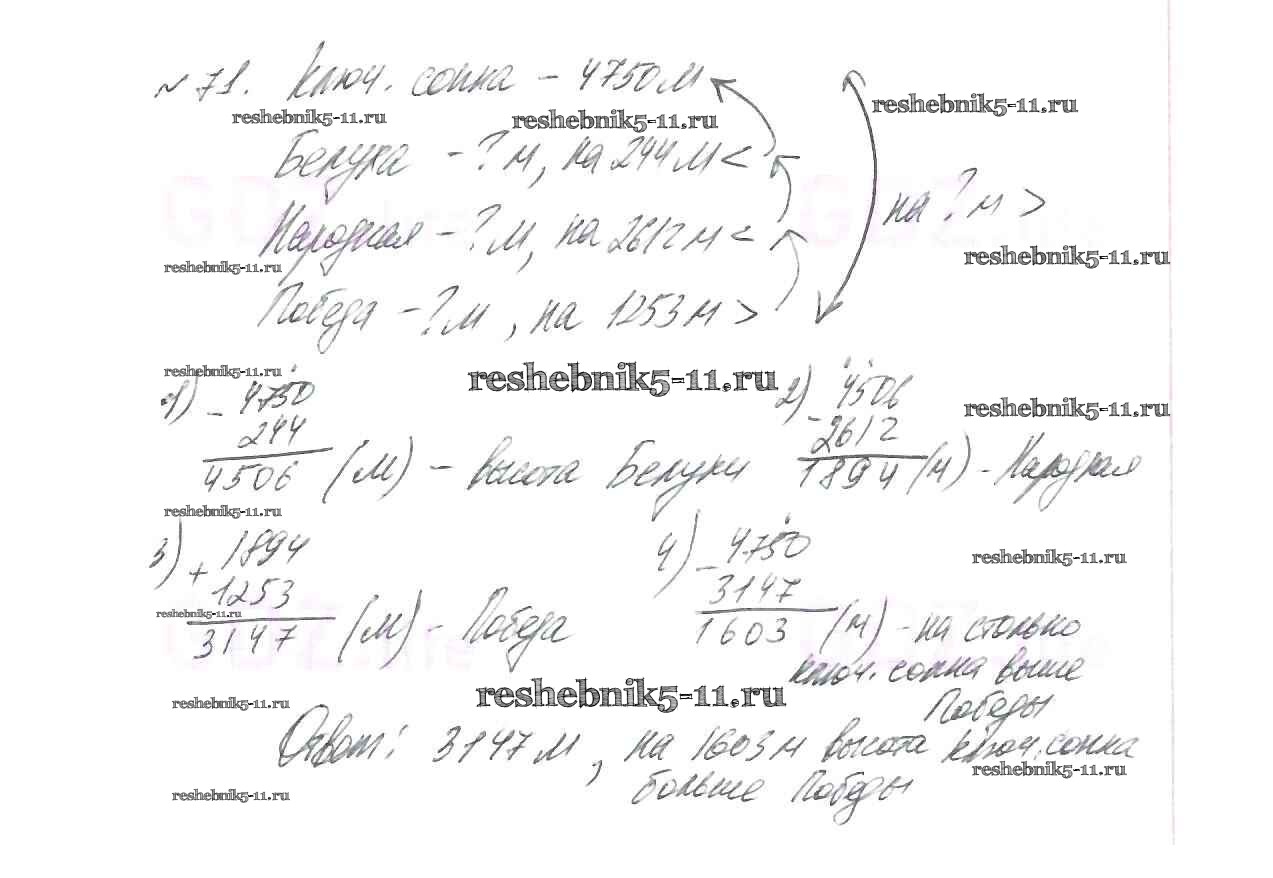 № 71. Ключ. сопка – 4750 м
reshebnik5-11.ru reshebnik5-11.ru reshebnik5-11.ru
Белуха – ? м, на 244 м <
на ? м >
Народная – ? м, на 2612 м <
reshebnik5-11.ru reshebnik5-11.ru
Победа – ? м, на 1253 м >
reshebnik5-11.ru reshebnik5-11.ru
1) – 4750 2) – 4506
reshebnik5-11.ru
244 2612
4506 (м) – высота Белухи 1894 (м) – Народная
reshebnik5-11.ru
3) + 1894 4) – 4750
reshebnik5-11.ru
1253 3147
reshebnik5-11.ru
3147 (м) – Победа 1603 (м) – на столько
ключ. сопка выше
reshebnik5-11.ru reshebnik5-11.ru
Победы
Ответ: 3147 м, на 1603 м высота ключ. сопка
reshebnik5-11.ru
больше Победы
reshebnik5-11.ru